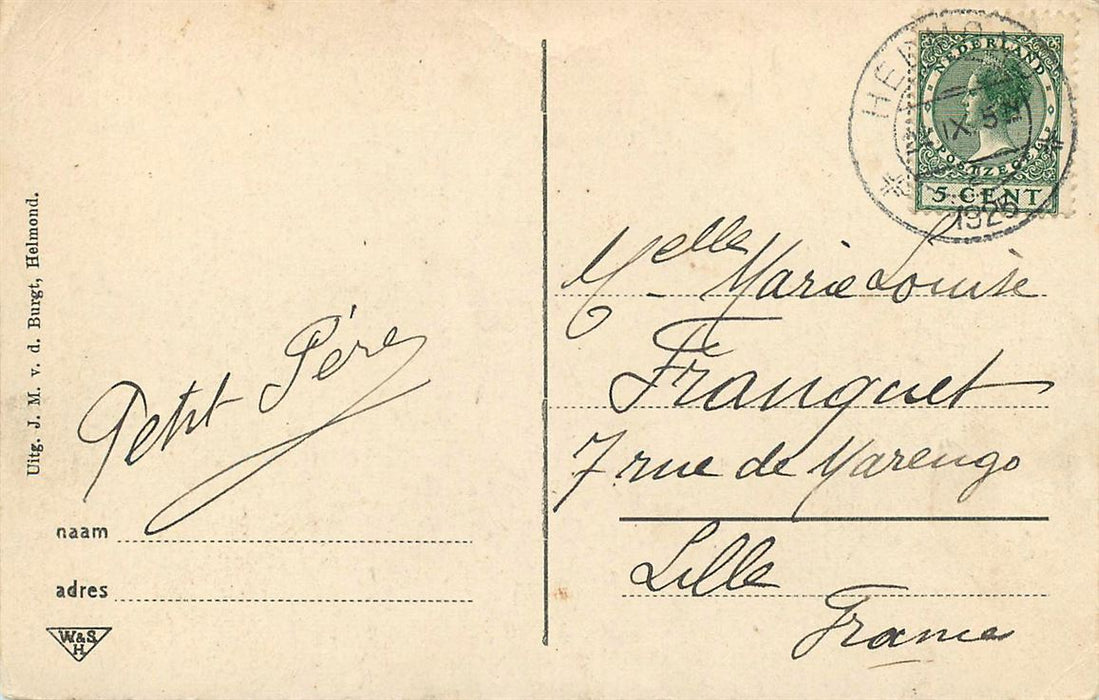 Uitg. J. M. v. d. Burgt, Helmond.
Petit Père
naam
adres
W&S
H
NEDERLAND
POSTZEGEL
5 CENT
HELMOND
IX 5
1925
Melle Marie Louise
Franquet
7 rue de Marengo
Lille
France